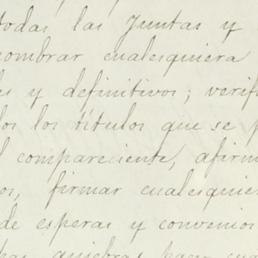 todas las Juntas y
nombrar cualesquiera
es y definitivos; verifi
los los títulos que se p
l compareciente, afirm
os, firmar cualesquie
de esperas y convenios
quiebras